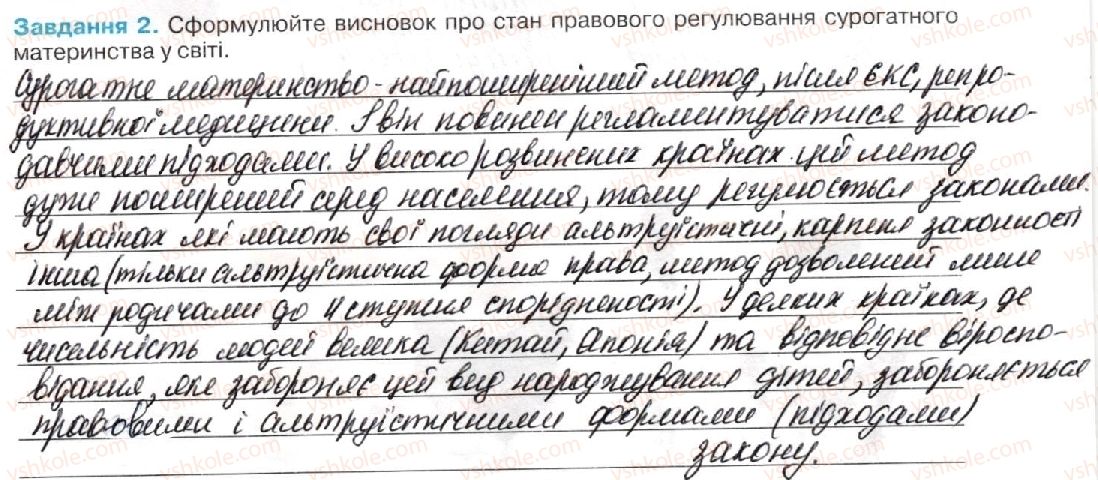 Завдання 2. Сформулюйте висновок про стан правового регулювання сурогатного
материнства у світі.
Сурогатне материнство - найпоширеніший метод, після ЕКС, репро-
дуктивної медицини. І він повинен регламентуватися законо-
давчими підходами. У високорозвинених країнах цей метод
дуже поширений серед населення, тому регулюється законами.
У країнах які мають свої погляди альтруїстичні, законності
інша (тільки альтруїстична форма права, метод дозволений лише
між родичами до II ступня спорідненості). У деяких країнах, де
чисельність людей велика (Китай, Японія) та відповідне віроспо-
відання, яке забороняє цей вид народжування дітей, забороняється
правовими і альтруїстичними формами (підходами)
закону.